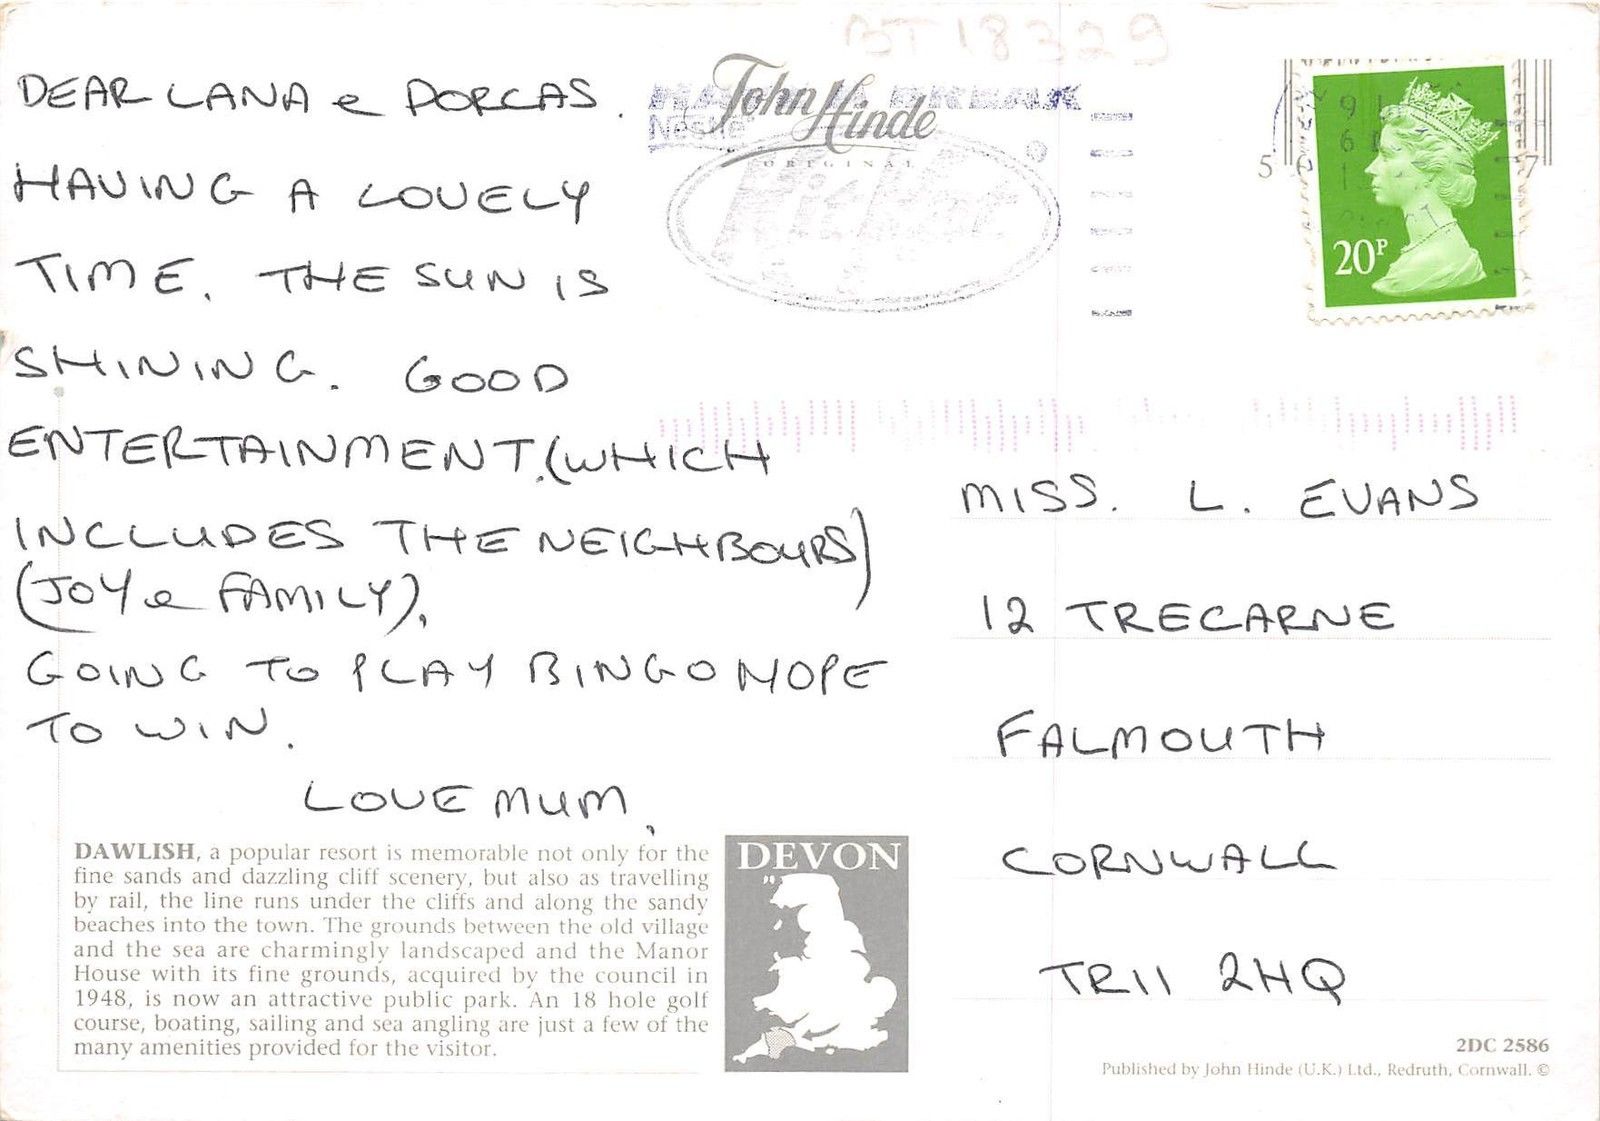 BT18329
DEAR LANA & DORCAS.
HAVING A LOVELY
TIME. THE SUN IS
SHINING. GOOD
ENTERTAINMENT.(WHICH
INCLUDES THE NEIGHBOURS)
(JOY & FAMILY).
GOING TO PLAY BINGO HOPE
TO WIN.
LOVE MUM.
DAWLISH, a popular resort is memorable not only for the
fine sands and dazzling cliff scenery, but also as travelling
by rail, the line runs under the cliffs and along the sandy
beaches into the town. The grounds between the old village
and the sea are charmingly landscaped and the Manor
House with its fine grounds, acquired by the council in
1948, is now an attractive public park. An 18 hole golf
course, boating, sailing and sea angling are just a few of the
many amenities provided for the visitor.
DEVON
John Hinde
ORIGINAL
Nestlé
KitKat
20P
MISS. L. EVANS
12 TRECARNE
FALMOUTH
CORNWALL
TR11 2HQ
2DC 2586
Published by John Hinde (U.K.) Ltd., Redruth, Cornwall. ©